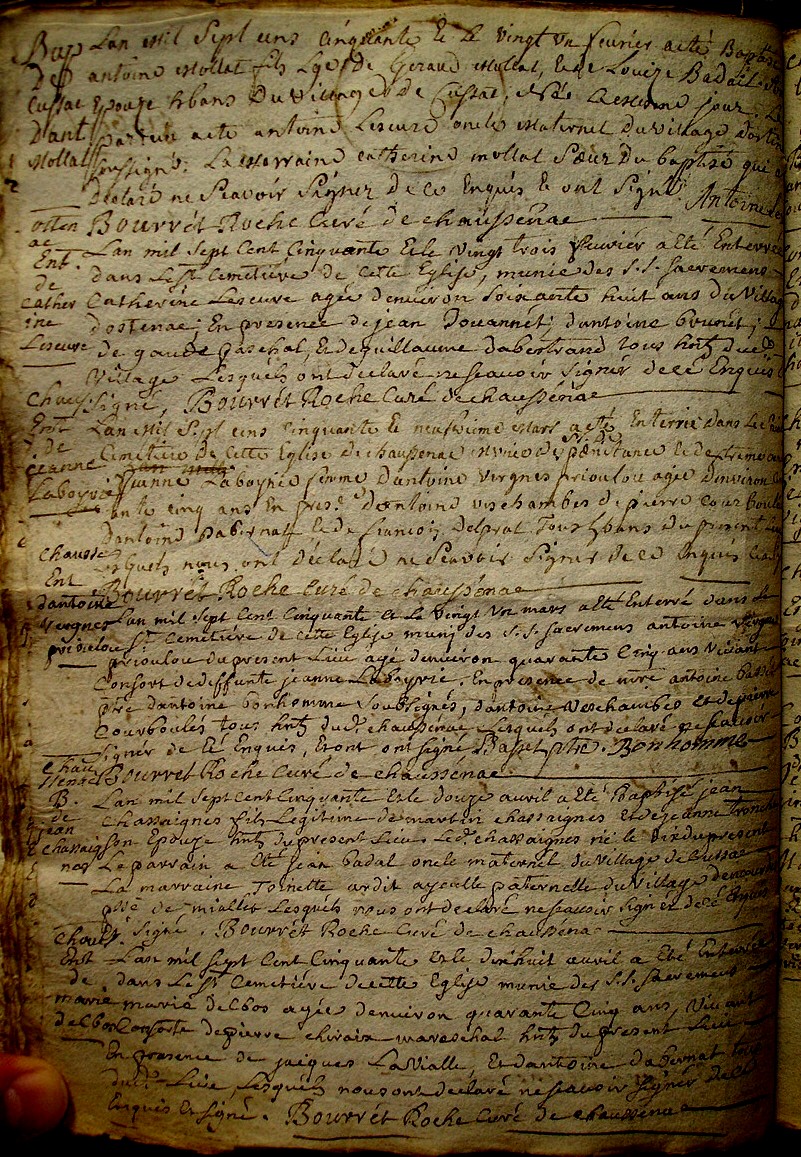 Bap Lan Mil Sept cens cinquante Et Le Vingt Un fevrier a eté Baptisé
De antoine Mollat fils Lge. de Geraud Mollat, Et de Louise Badail
Cussac Epouze hbans Du Village de Cussac,
Dant parrain a eté antoine Lescure oncle Maternel Du Village
Mollat soussigné. La Marraine catherine mollat Sœur Du baptisé qui a
Declaré ne Scavoir Signer De Ce Enquis Et ont Signé. Antoine
osten Bourrét Roche Curé de chaussénac
ac Lan mil Sept Cent Cinquante Et le Vingt trois fevriér a eté Enterrée
Ent. dans Le St. Cemetiére de Cette Eglise, munie des S.S. Sacremens
de
Cather Catherine Lescure agée denviron Soixante huit ans du Villag
ine dostenac; En presence de jean Jouannét; dantoine brunét;
Lescure de gaude paschal, Et de guillaume dabertrand tous hnts dued.
Village Lesquels ont déclaré ne scavoir Signer de cé Enquis
Chaus. Signé, Bourrét Roche Curé de chaussénac
Ent Lan Mil Sept cens cinquante Le neufvieme Mars a eté Enterrée Dans Le
de Cimetiere de Cette Eglise de chaussenac de penitance Et de
jeanne
Laboyrie jeanne Laboyrie femme dantoine Vergnes prioulou agée Denviron
ante cinq ans En pres.e dantoine veschambes de pierre Courboule
dantoine Dabernat Et de francois Delprat Tous hbans du present
Chausse Lesquels nous ont déclaré ne Scavoir Signer de ce Enquis
Ent Bourrét Roche Curé de chaussénac
dantoine
Vergnes Lan mil Sept Cent Cinquante et Le Vingt Un mars a eté Enterré dans le
prioulou St. Cemetiére de cette Eglise muni des S.S. Sacremens antoine Vergnes
prioulou du present Lieu agé denviron quarante Cinq ans Vivant
Consort de deffunte jeanne Laboyrie. En presence de mre. antoine basset
ptre dantoine bonhomme Soubsignés, dantoine Veschambes et de pierre
Courboules tous hnts du d. chaussénac Lesquels ont declaré ne scavoir
Signér de cé Enquis, Et ont ont signé Basset ptre. Bonhomme
chau
ssenac Bourrét Roche Curé de chaussénac
B. Lan mil Sept Cent Cinquante Et le douze avril a eté Baptisé jean
de Chassaignes fils Legitime de martin chassaignes et de jeanne
jean
chassaig son Epouze hnts du present Lieu. Le d. chassaignes né le dix du present
nes Le parrain a eté jean badal oncle maternel du Village de Cussac
La marraine Toinette ardit ayeulle paternelle du Village
psse de mialler Lesquels nous ont declaré ne scavoir signer de cé Enquis
Chauss. Signé. Bourrét Roche Curé de chaussénac
Ent Lan mil Sept Cent Cinquante Et le dixhuit avril a Eté Enterrée
de dans Le St. Cemetiére de cette Eglise munie des S.S. Sacremens
marie marie delbos agée denviron quarante Cinq ans, Vivant
delbos Consorte de pierre chivaix mareschal hnt du present Lieu
En presence de jacques Lavialle, Et dantoine dabernat tous
du d. Lieu, Lesquels nous ont declaré ne scavoir Signér de cé
Enquis Et signé. Bourrét Roche Curé de chaussénac